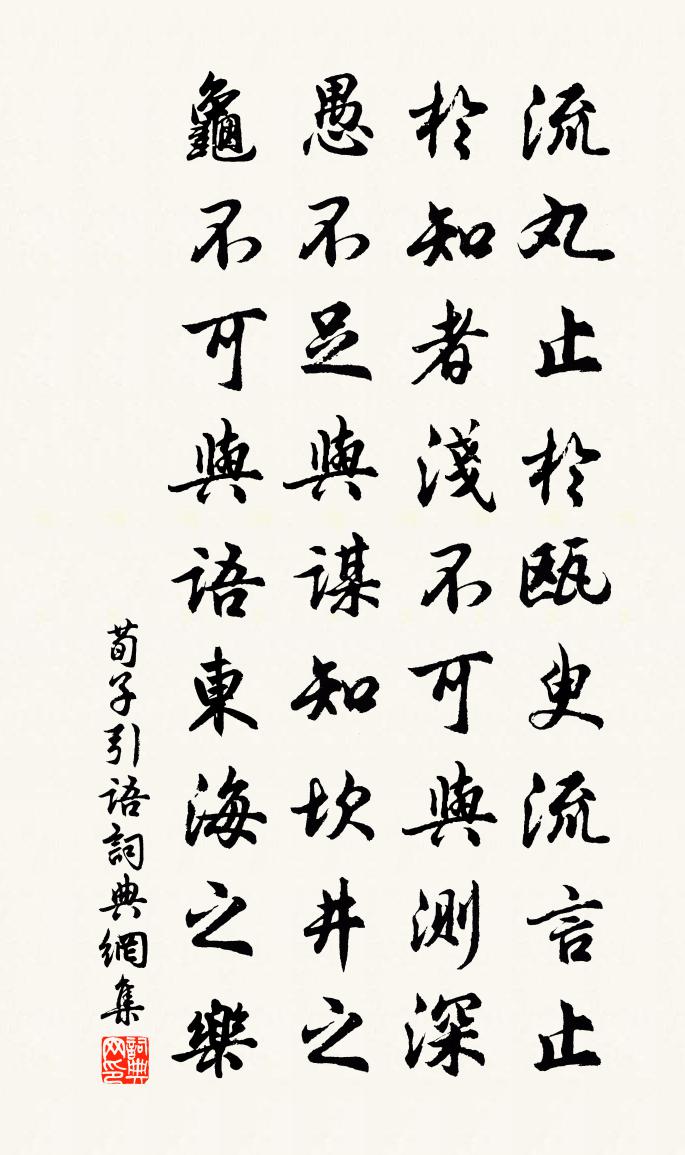 流丸止於瓯臾流言止
於知者淺不可與測深
愚不足與謀知坎井之
龜不可與語東海之樂
荀子引語詞典網集
詞典网印